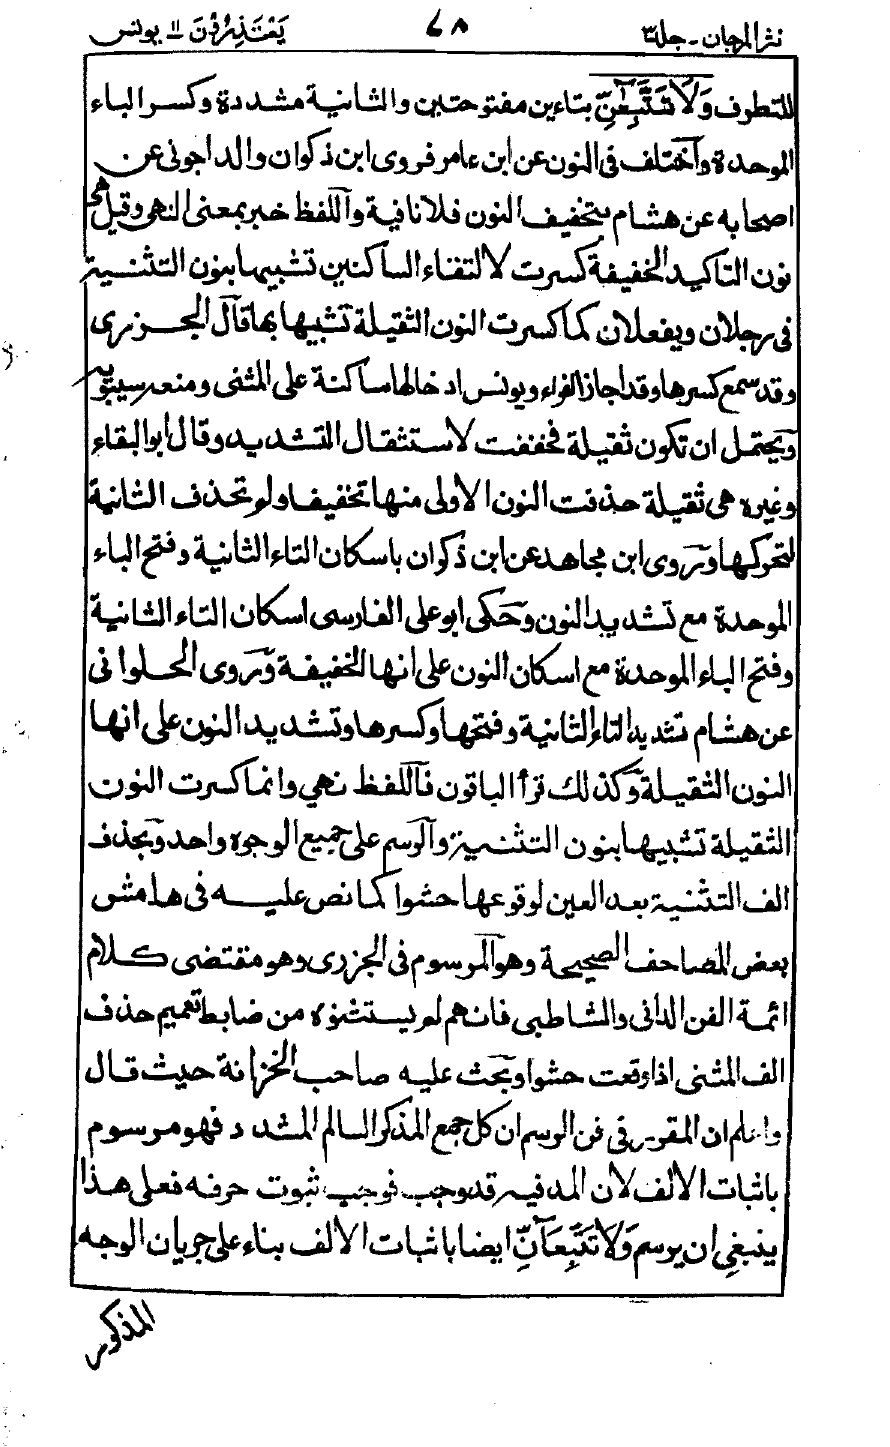 نثر المرجان - جلد٣ ٦٨ يَعْتَذِرُوْنَ ١١ يونس
للتطرف وَلَا تَتَّبِعٰٓنِّ بتاءين مفتوحتين والثانية مشددة وكسر الباء
الموحدة واختلف فى النون عن ابن عامر فروى ابن ذكوان والداجونى عن
اصحابه عن هشام بتخفيف النون فلا نافية واللفظ خبر بمعنى النهى وقيل هى
نون التاكيد الخفيفة كسرت لالتقاء الساكنين تشبيها بنون التثنية
فى رجلان ويفعلان كما كسرت النون الثقيلة تشبيها بها قال الجزرى
وقد سمع كسرها وقد اجاز الفراء ويونس ادخالها ساكنة على المثنى ومنعه سيبويه
ويحتمل ان تكون ثقيلة فخففت لاستثقال التشديد وقال ابو البقاء
وغيره هى ثقيلة حذفت النون الاولى منها تخفيفا ولم تحذف الثانية
لتحركها وروى ابن مجاهد عن ابن ذكوان باسكان التاء الثانية وفتح الباء
الموحدة مع تشديد النون وحكى ابو على الفارسى اسكان التاء الثانية
وفتح الباء الموحدة مع اسكان النون على انها الخفيفة وروى الحلوانى
عن هشام تشديد التاء الثانية وفتحها وكسرها وتشديد النون على انها
النون الثقيلة وكذلك قرأ الباقون فاللفظ نهي وانما كسرت النون
الثقيلة تشبيها بنون التثنية والرسم على جميع الوجوه واحد وبحذف
الف التثنية بعد العين لوقوعها حشوا كما نص عليه فى هامش
بعض المصاحف الصحيحة وهو المرسوم فى الجزرى وهو مقتضى كلام
ائمة الفن الدانى والشاطبى فانهم لم يستثنوه من ضابط تعميم حذف
الف المثنى اذا وقعت حشوا وبحث عليه صاحب الخزانة حيث قال
واعلم ان المقرر فى فن الرسم ان كل جمع المذكر السالم المشدد فهو مرسوم
باثبات الالف لان المد فيه قد وجب فوجب ثبوت حرفه فعلى هذا
ينبغى ان يرسم وَلَا تَتَّبِعَآنِّ ايضا باثبات الالف بناء على جريان الوجه
المذكور